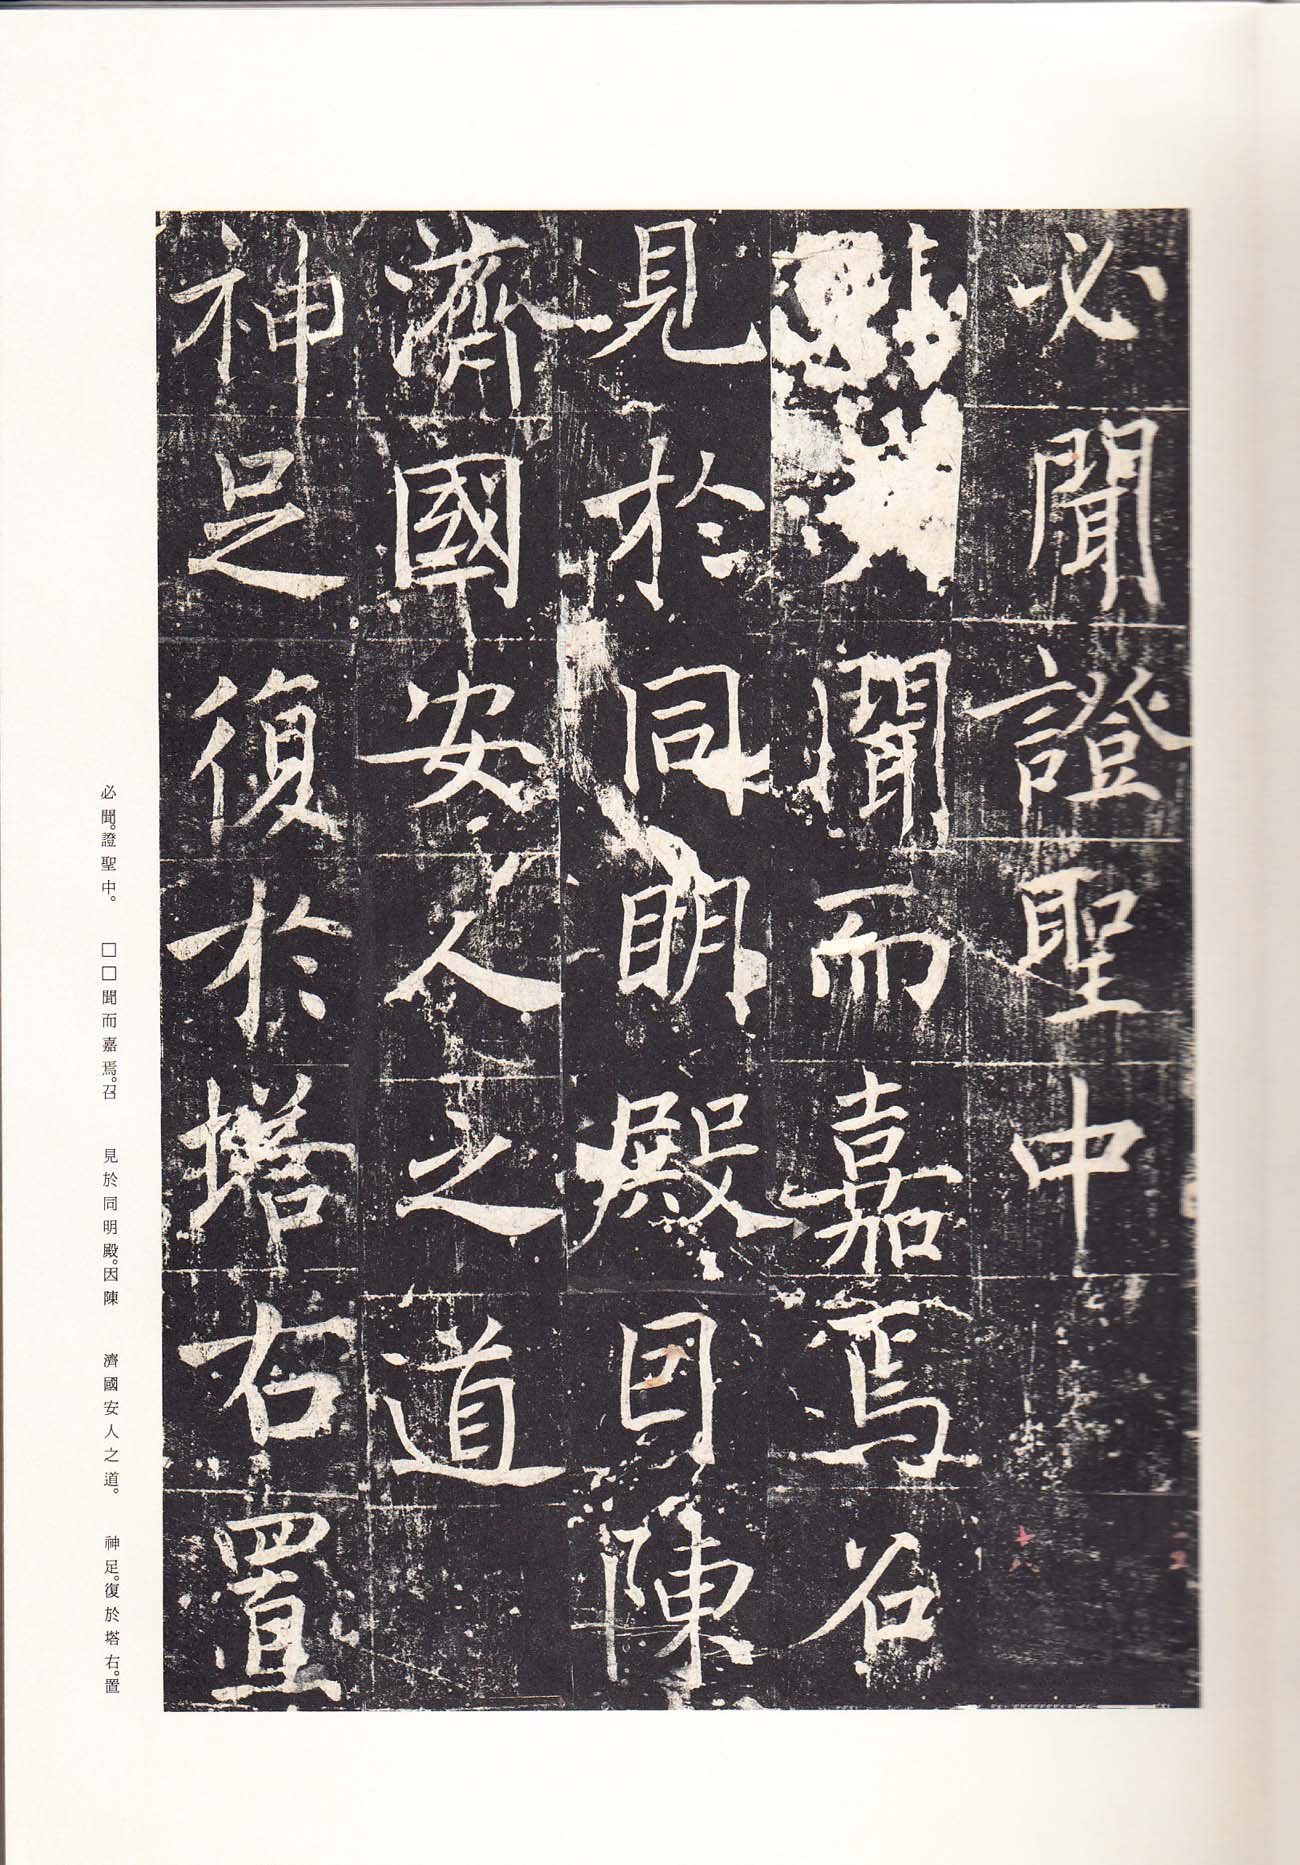 必聞證聖中
聞而嘉焉召
見於同明殿因陳
濟國安人之道
神足復於塔右置
必聞。證聖中。　□□聞而嘉焉。召　見於同明殿。因陳　濟國安人之道。　神足。復於塔右。置
十八